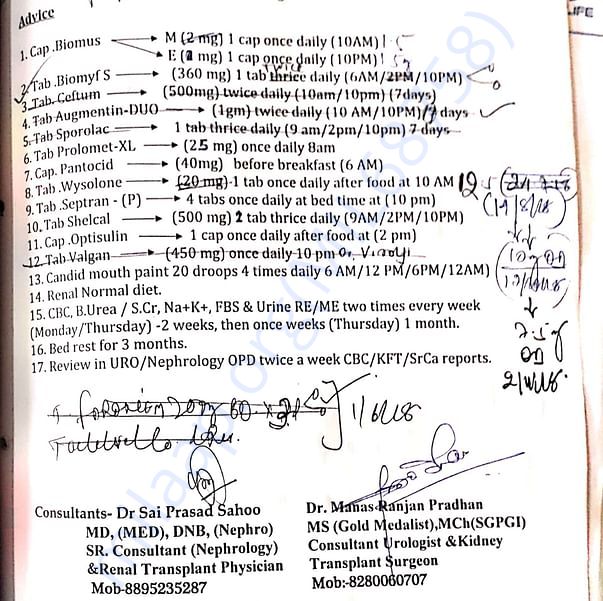 Advice
LIFE
1. Cap .Biomus → M (2 mg) 1 cap once daily (10AM)
E (1 mg) 1 cap once daily (10PM)
2. Tab .Biomyf S → (360 mg) 1 tab thrice daily (6AM/2PM/10PM)
twice
3. Tab. Ceftum → (500mg) twice daily (10am/10pm) (7days)
4. Tab Augmentin-DUO → (1gm) twice daily (10 AM/10PM)/7 days
5. Tab Sporolac → 1 tab thrice daily (9 am/2pm/10pm) 7 days
6. Tab Prolomet-XL → (25 mg) once daily 8am
7. Cap. Pantocid → (40mg) before breakfast (6 AM)
8. Tab .Wysolone → (20 mg)-1 tab once daily after food at 10 AM
9. Tab .Septran - (P) → 4 tabs once daily at bed time at (10 pm)
10. Tab Shelcal → (500 mg) 1 tab thrice daily (9AM/2PM/10PM)
11. Cap .Optisulin → 1 cap once daily after food at (2 pm)
12. Tab Valgan → (450 mg) once daily 10 pm
13. Candid mouth paint 20 droops 4 times daily 6 AM/12 PM/6PM/12AM)
14. Renal Normal diet.
15. CBC, B.Urea / S.Cr, Na+K+, FBS & Urine RE/ME two times every week
(Monday/Thursday) -2 weeks, then once weeks (Thursday) 1 month.
16. Bed rest for 3 months.
17. Review in URO/Nephrology OPD twice a week CBC/KFT/SrCa reports.
OD
Consultants- Dr Sai Prasad Sahoo
MD, (MED), DNB, (Nephro)
SR. Consultant (Nephrology)
&Renal Transplant Physician
Mob-8895235287
Dr. Manas Ranjan Pradhan
MS (Gold Medalist),MCh(SGPGI)
Consultant Urologist &Kidney
Transplant Surgeon
Mob:-8280060707